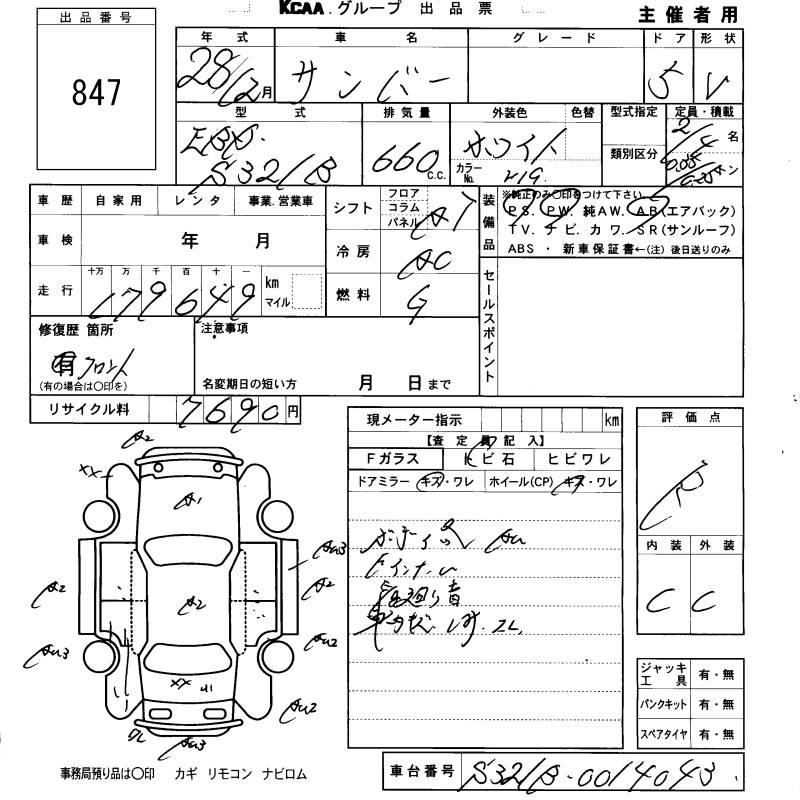 KCAA.グループ 出品票
主催者用
出品番号
847
年式 車名 グレード ドア 形状
28/12月 サンバー 5 V
型式 排気量 外装色 色替 型式指定 定員・積載
EBD- 660c.c. ホワイト 2/4名
S321B カラーNo. 類別区分 トン
車歴 自家用 レンタ 事業.営業車
シフト フロア コラム パネル AT
装備品 ※純正のみ〇印をつけて下さい
PS. PW. 純AW. AB(エアバック)
TV. ナビ. カワ. SR(サンルーフ)
ABS ・ 新車保証書←(注)後日送りのみ
車検 年 月
冷房 AC
走行 十万 万 千 百 十 一
179649 km マイル
燃料 G
セールスポイント
修復歴 箇所
有 フロント
(有の場合は〇印を)
注意事項
名変期日の短い方 月 日まで
リサイクル料 7690円
現メーター指示 km
【査定員記入】
Fガラス トビ石 ヒビワレ
ドアミラー キズ・ワレ ホイール(CP) キズ・ワレ
評価点
R
内装 外装
C C
A2
XX
A1
AU3
A2
A2
A2
AU2
AU3
XX U1
AU2
AU3
ジャッキ工具 有・無
パンクキット 有・無
スペアタイヤ 有・無
事務局預り品は〇印 カギ リモコン ナビロム
車台番号 S321B-0014043